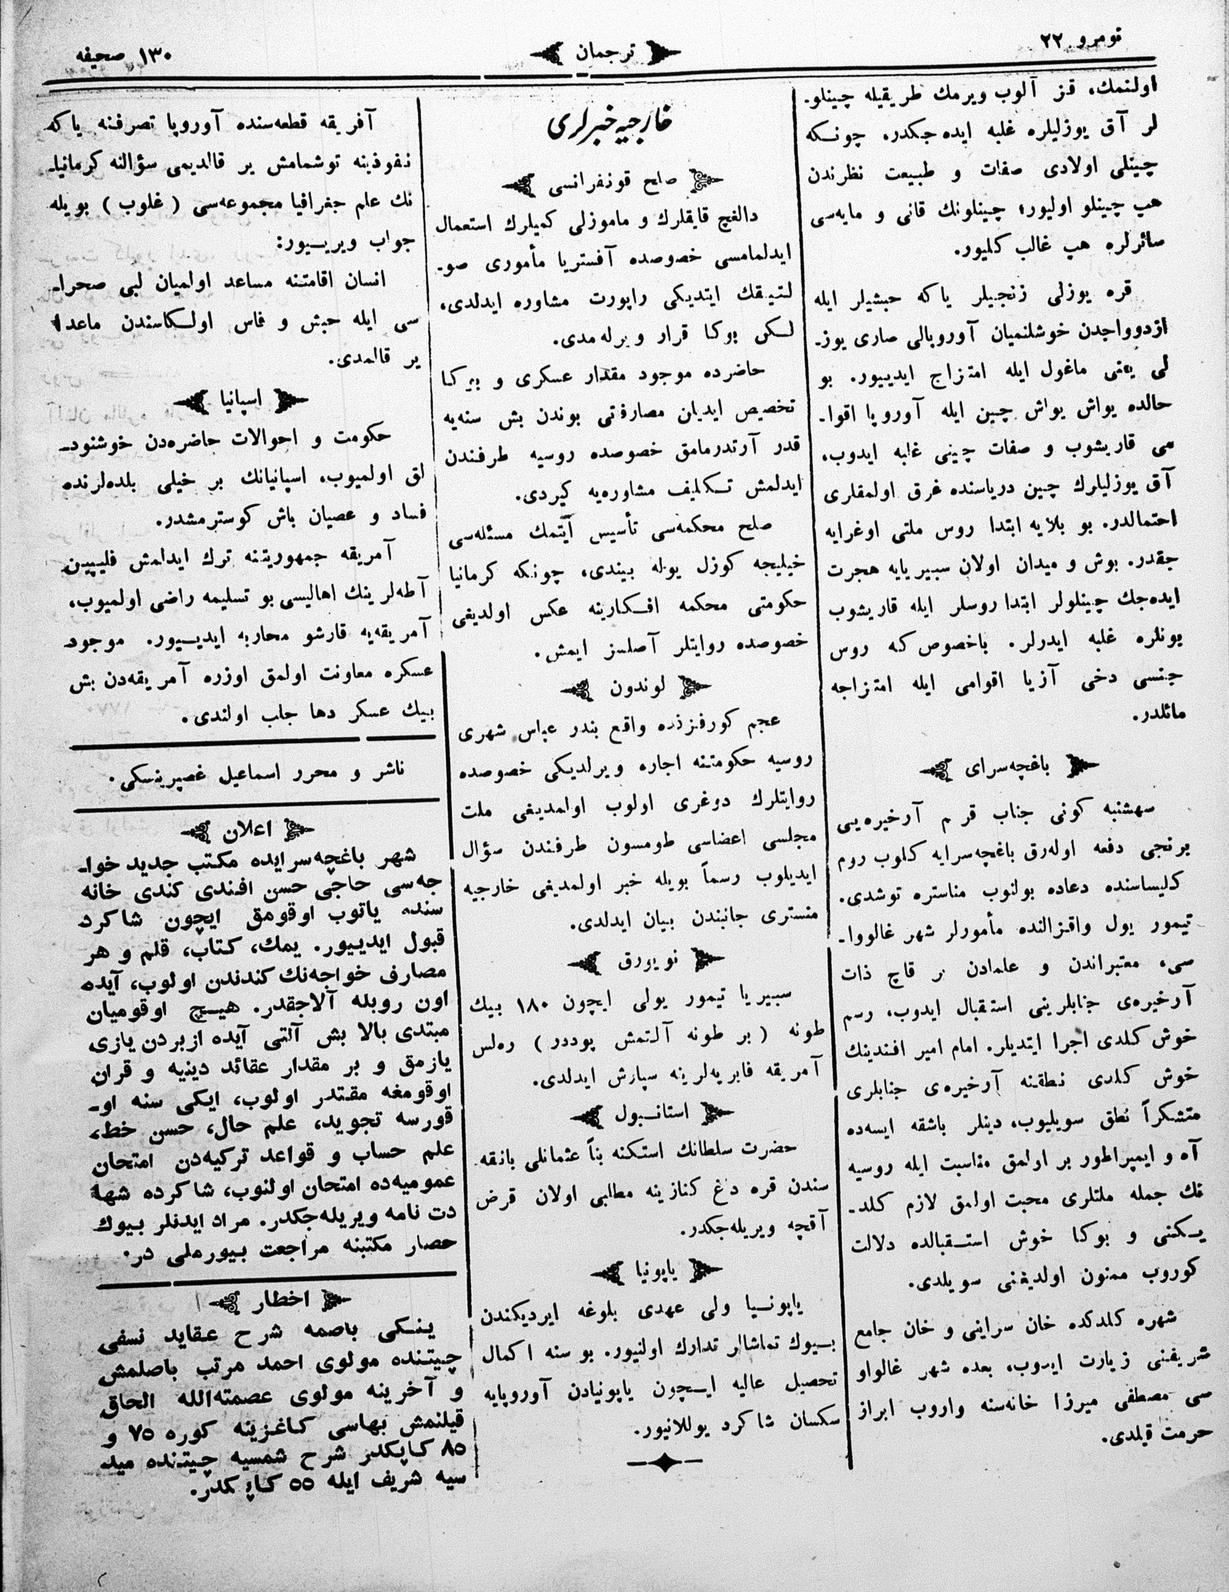 نومرو ٢٢
ترجمان
١٣٠ صحیفه
اولنمك، قز آلوب ویرمك طریقیله چینلو-
لر آق یوزلیلره غلبه ایده‌جكدر. چونكه
چینلی اولادی صفات و طبیعت نظرندن
هپ چینلو اولیور؛ چینلونك قانی و مایه‌سی
سائرلره هپ غالب كلیور.
قره یوزلی زنجیلر یاكه حبشیلر ایله
ازدوواجدن خوشلنمیان آوروپالی صاری یوز-
لی یعنی ماغول ایله امتزاج ایدییور. بو
حالده یواش یواش چین ایله آوروپا اقوا-
می قاریشوب و صفات چینی غلبه ایدوب،
آق یوزلیلرك چین دریاسنده غرق اولمقلری
احتمالدر. بو بلایه ابتدا روس ملتی اوغرایه
جقدر. بوش و میدان اولان سبیریایه هجرت
ایده‌جك چینلولر ابتدا روسلر ایله قاریشوب
یونلره غلبه ایدرلر. باخصوص كه روس
جنسی دخی آزیا اقوامی ایله امتزاجه
مائلدر.
باغچه‌سرای
سه‌شنبه كونی جناب قرم آرخیره‌یی
برنجی دفعه اوله‌رق باغچه‌سرایه كلوب روم
كلیساسنده دعاده بولنوب مناستره توشدی.
تیمور یول واقزالنده مأمورلر شهر غالووا-
سی، معتبراندن و علمادن بر قاچ ذات
آرخیره‌ی جنابلرینی استقبال ایدوب، رسم
خوش كلدی اجرا ایتدیلر. امام امیر افندینك
خوش كلدی نطقنه آرخیره‌ی جنابلری
متشكراً نطق سویلیوب، دینلر باشقه ایسه‌ده
آه و ایمپراطور بر اولمق مناسبت ایله روسیه
نك جمله ملتلری محبت اولمق لازم كلد-
یكنی و بوكا خوش استقبالده دلالت
كوروب ممنون اولدیغنی سویلدی.
شهره كلدكده خان سراینی و خان جامع
شریفنی زیارت ایدوب، بعده شهر غالواو
سی مصطفی میرزا خانه‌سنه واروب ابراز
حرمت قیلدی.
خارجیه خبرلری
صلح قونفرانسی
دالغچ قایقلرك و ماموزلی كمیلرك استعمال
ایدلمامسی خصوصده آفستریا مأموری صو-
لتیقك ایتدیكی راپورت مشاوره ایدلدی،
لكن بوكا قرار ویرله‌مدی.
حاضرده موجود مقدار عسكری و بیركا
تخصیص ایدیلن مصارفنی بوندن بش سنه‌یه
قدر آرتدرمامق خصوصده روسیه طرفندن
ایدلمش تكلیف مشاوره‌یه كیردی.
صلح محكمه‌سی تأسیس ایتمك مسئله‌سی
خیلیجه كوزل یوله بیندی، چونكه كرمانیا
حكومتی محكمه افكارینه عكس اولدیغی
خصوصده روایتلر آصلسز ایمش.
لوندون
عجم كورفزنده واقع بندر عباس شهری
روسیه حكومتنه اجاره ویرلدیكی خصوصده
روایتلرك دوغری اولوب اولمدیغی ملت
مجلسی اعضاسی طومسون طرفندن سؤال
ایدیلوب رسماً بویله خبر اولمدیغی خارجیه
منستری جانبندن بیان ایدلدی.
نویورق
سبیریا تیمور یولی ایچون ١٨٠ بیك
طونه ( بر طونه آلتمش پوددر ) ره‌لس
آمریقه فابریه‌لرینه سپارش ایدلدی.
استانبول
حضرت سلطانك استكنه بناً عثمانلی بانقه
سندن قره داغ كنازینه مطالبی اولان قرض
آقچه ویریله‌جكدر.
یاپونیا
یاپونیا ولی عهدی بلوغه ایردیكندن
بیوك تماشالر تدارك اولنیور. بو سنه اكمال
تحصیل عالیه ایچون یاپونیادن آوروپایه
سكسان شاكرد یوللانیور.
آفریقه قطعه‌سنده آوروپا تصرفنه یاكه
نفوذینه توشمامش یر قالدیمی سؤالنه كرمانیا-
نك علم جغرافیا مجموعه‌سی ( غلوب ) بویله
جواب ویرییور:
انسان اقامتنه مساعد اولمیان لبی صحرا-
سی ایله حبش و فاس اولكاسندن ماعدا
یر قالمدی.
اسپانیا
حكومت و احوالات حاضره‌دن خوشنود-
لق اولمیوب، اسپانیانك بر خیلی بلده‌لرنده
فساد و عصیان باش كوسترمشدر.
آمریقه جمهوریتنه ترك ایدلمش فلیپین
آطه‌لرینك اهالیسی بو تسلیمه راضی اولمیوب،
آمریقه‌یه قارشو محاربه ایدییور. موجود
عسكره معاونت اولمق اوزره آمریقه‌دن بش
بیك عسكر دها جلب اولندی.
ناشر و محرر اسماعیل غصپرینسكی.
اعلان
شهر باغچه‌سرایده مكتب جدید خوا-
جه‌سی حاجی حسن افندی كندی خانه
سنده یاتوب اوقومق ایچون شاكرد
قبول ایدییور. یمك، كتاب، قلم و هر
مصارف خواجه‌نك كندندن اولوب، آیده
اون روبله آلاجقدر. هیچ اوقومیان
مبتدی بالا بش آلتی آیده ازبردن یازی
یازمق و بر مقدار عقائد دینیه و قران
اوقومغه مقتدر اولوب، ایكی سنه او-
قورسه تجوید، علم حال، حسن خط،
علم حساب و قواعد تركیه‌دن امتحان
عمومیه‌ده امتحان اولنوب، شاكرده شها
دت نامه ویریله‌جكدر. مراد ایدنلر بیوك
حصار مكتبنه مراجعت بیورملی در.
اخطار
ینكی باصمه شرح عقاید نسفی
چیتنده مولوی احمد مرتب باصلمش
و آخرینه مولوی عصمته‌الله الحاق
قیلنمش بهاسی كاغزینه كوره ٧٥ و
٨٥ كاپكدر شرح شمسیه چیتنده مید
سیه شریف ایله ٥٥ كاپكدر.